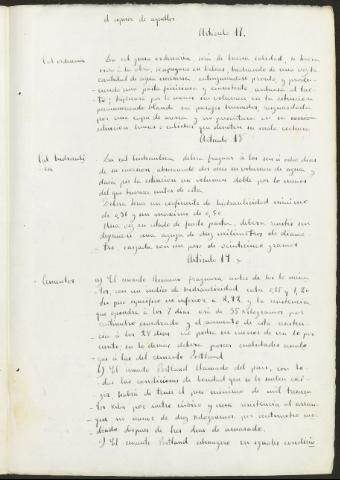 el espesor de aquellos.
Artículo 17.
Cal ordinaria
La cal grasa ordinaria será de buena calidad, se llevará
viva á la obra, se apagará en balsas, haciendo de una vez la
cantidad de agua necesaria extinguiéndose pronto, y produ-
ciendo una pasta finísima y consistente untuosa al tac-
to; triplicará por lo menos su volumen en la extinción
permaneciendo blanda en parajes húmedos, resguardada
por una capa de arena y no presentará en su
extinción huesos o caliches que denoten su mala cochura
Artículo 18
Cal hidraúli
ca
La cal hidraúlica deberá fraguar á los seis ú ocho días
de su inmersión absorviendo dos veces su volumen de agua y
dará por la extinción un volumen doble por lo menos
del que tuviese antes de esta.
Deberá tener un coeficiente de hidraulicidad mínimo
de 0,31 y un máximo de 0,50
Una vez en estado de pasta podrá
depresión una aguja de dos milímetros de diáme-
tro, cargada con un peso de veinticinco gramos
Artículo 19.
Cementos
a) El cemento Romano fraguará antes de los 20 minu-
tos, con un índice de hidraulicidad entre 0,65 y 1,20
Su peso específico no inferior a 2,72 y la resistencia
que ofrecerá á los 7 días será de 35 kilogramos por
centímetro cuadrado y el aumento de esta resisten-
cia á los 28 días no podrá ser menor de un 20 por
ciento; en lo demás deberá poseer cualidades análo-
gas á las del cemento Portland
b) El cemento Portland llamado del país, con to-
das las condiciones de bondad que se le suelen exi-
gir, habrá de tener el peso mínimo de mil trescien-
tos kilos por metro cúbico y una resistencia al arran-
que, no menor de diez kilogramos por centímetro cua-
drado después de tres días de amasado.
c) El cemento Portland extrangero en iguales condicio